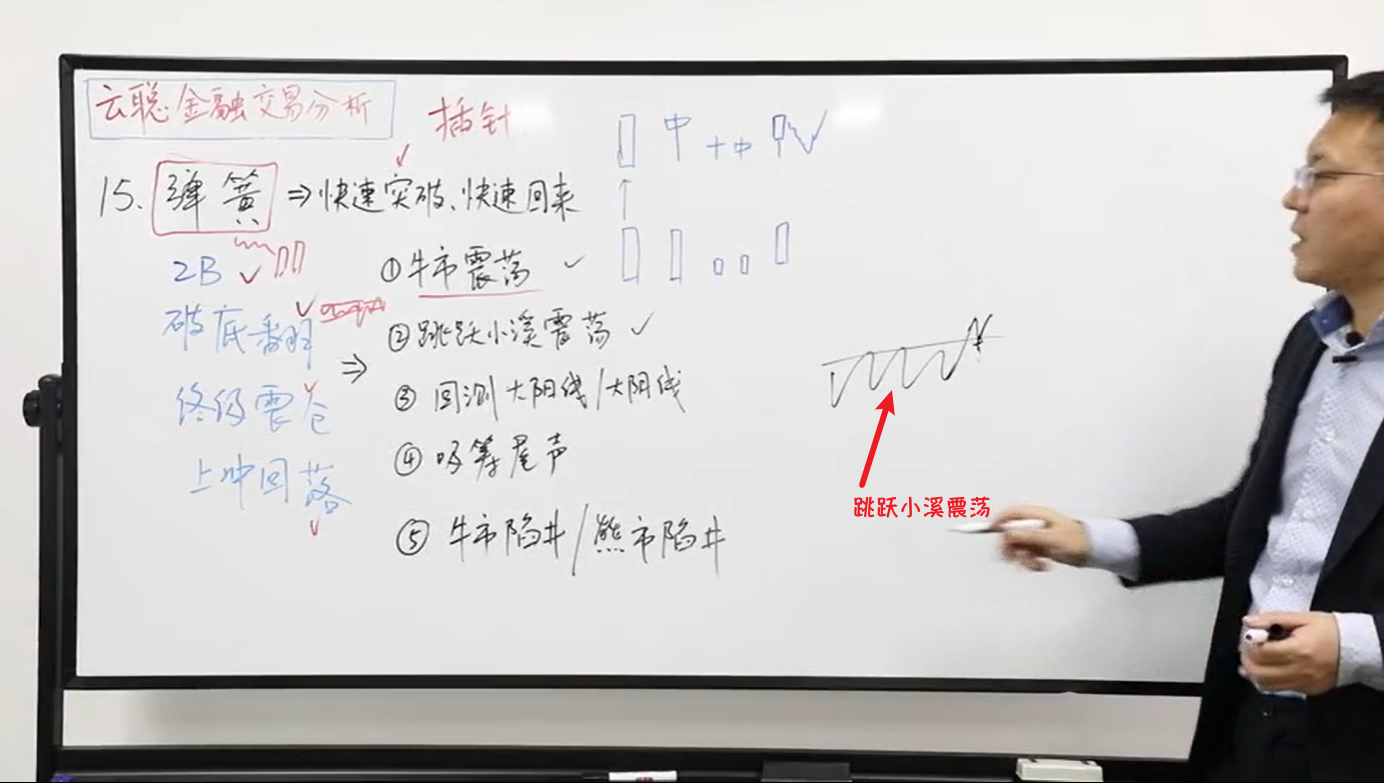 云聪金融交易分析
插针
15. 弹簧 ⇒ 快速突破、快速回来
2B
破底翻
终极震仓
上冲回落
⇒
①牛市震荡
②跳跃小溪震荡
③回测大阳线/大阴线
④吸筹尾声
⑤牛市陷井/熊市陷井
跳跃小溪震荡